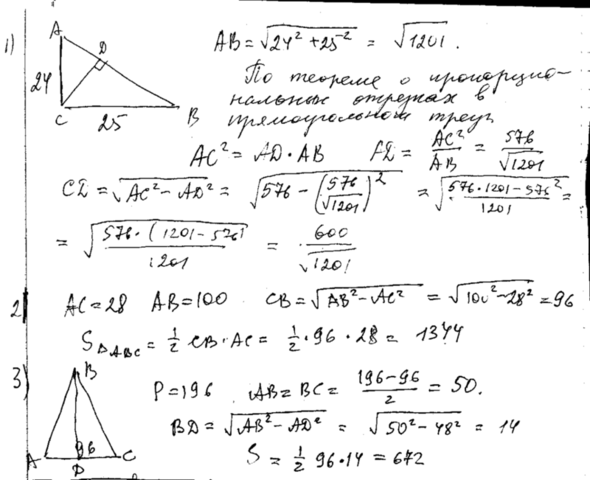 1) A D 24 C 25 B
AB = √(24² + 25²) = √1201.
По теореме о пропорцио-
нальных отрезках в
прямоугольном треуг
AC² = AD · AB AD = AC²/AB = 576/√1201
CD = √(AC² − AD²) = √(576 − (576/√1201)²) = √((576·1201 − 576²)/1201) =
= √(576·(1201 − 576)/1201) = 600/√1201
2) AC = 28 AB = 100 CB = √(AB² − AC²) = √(100² − 28²) = 96
S△ABC = 1/2 CB · AC = 1/2 · 96 · 28 = 1344
3) B A 96 D C
P = 196 AB = BC = (196 − 96)/2 = 50.
BD = √(AB² − AD²) = √(50² − 48²) = 14
S = 1/2 96 · 14 = 672